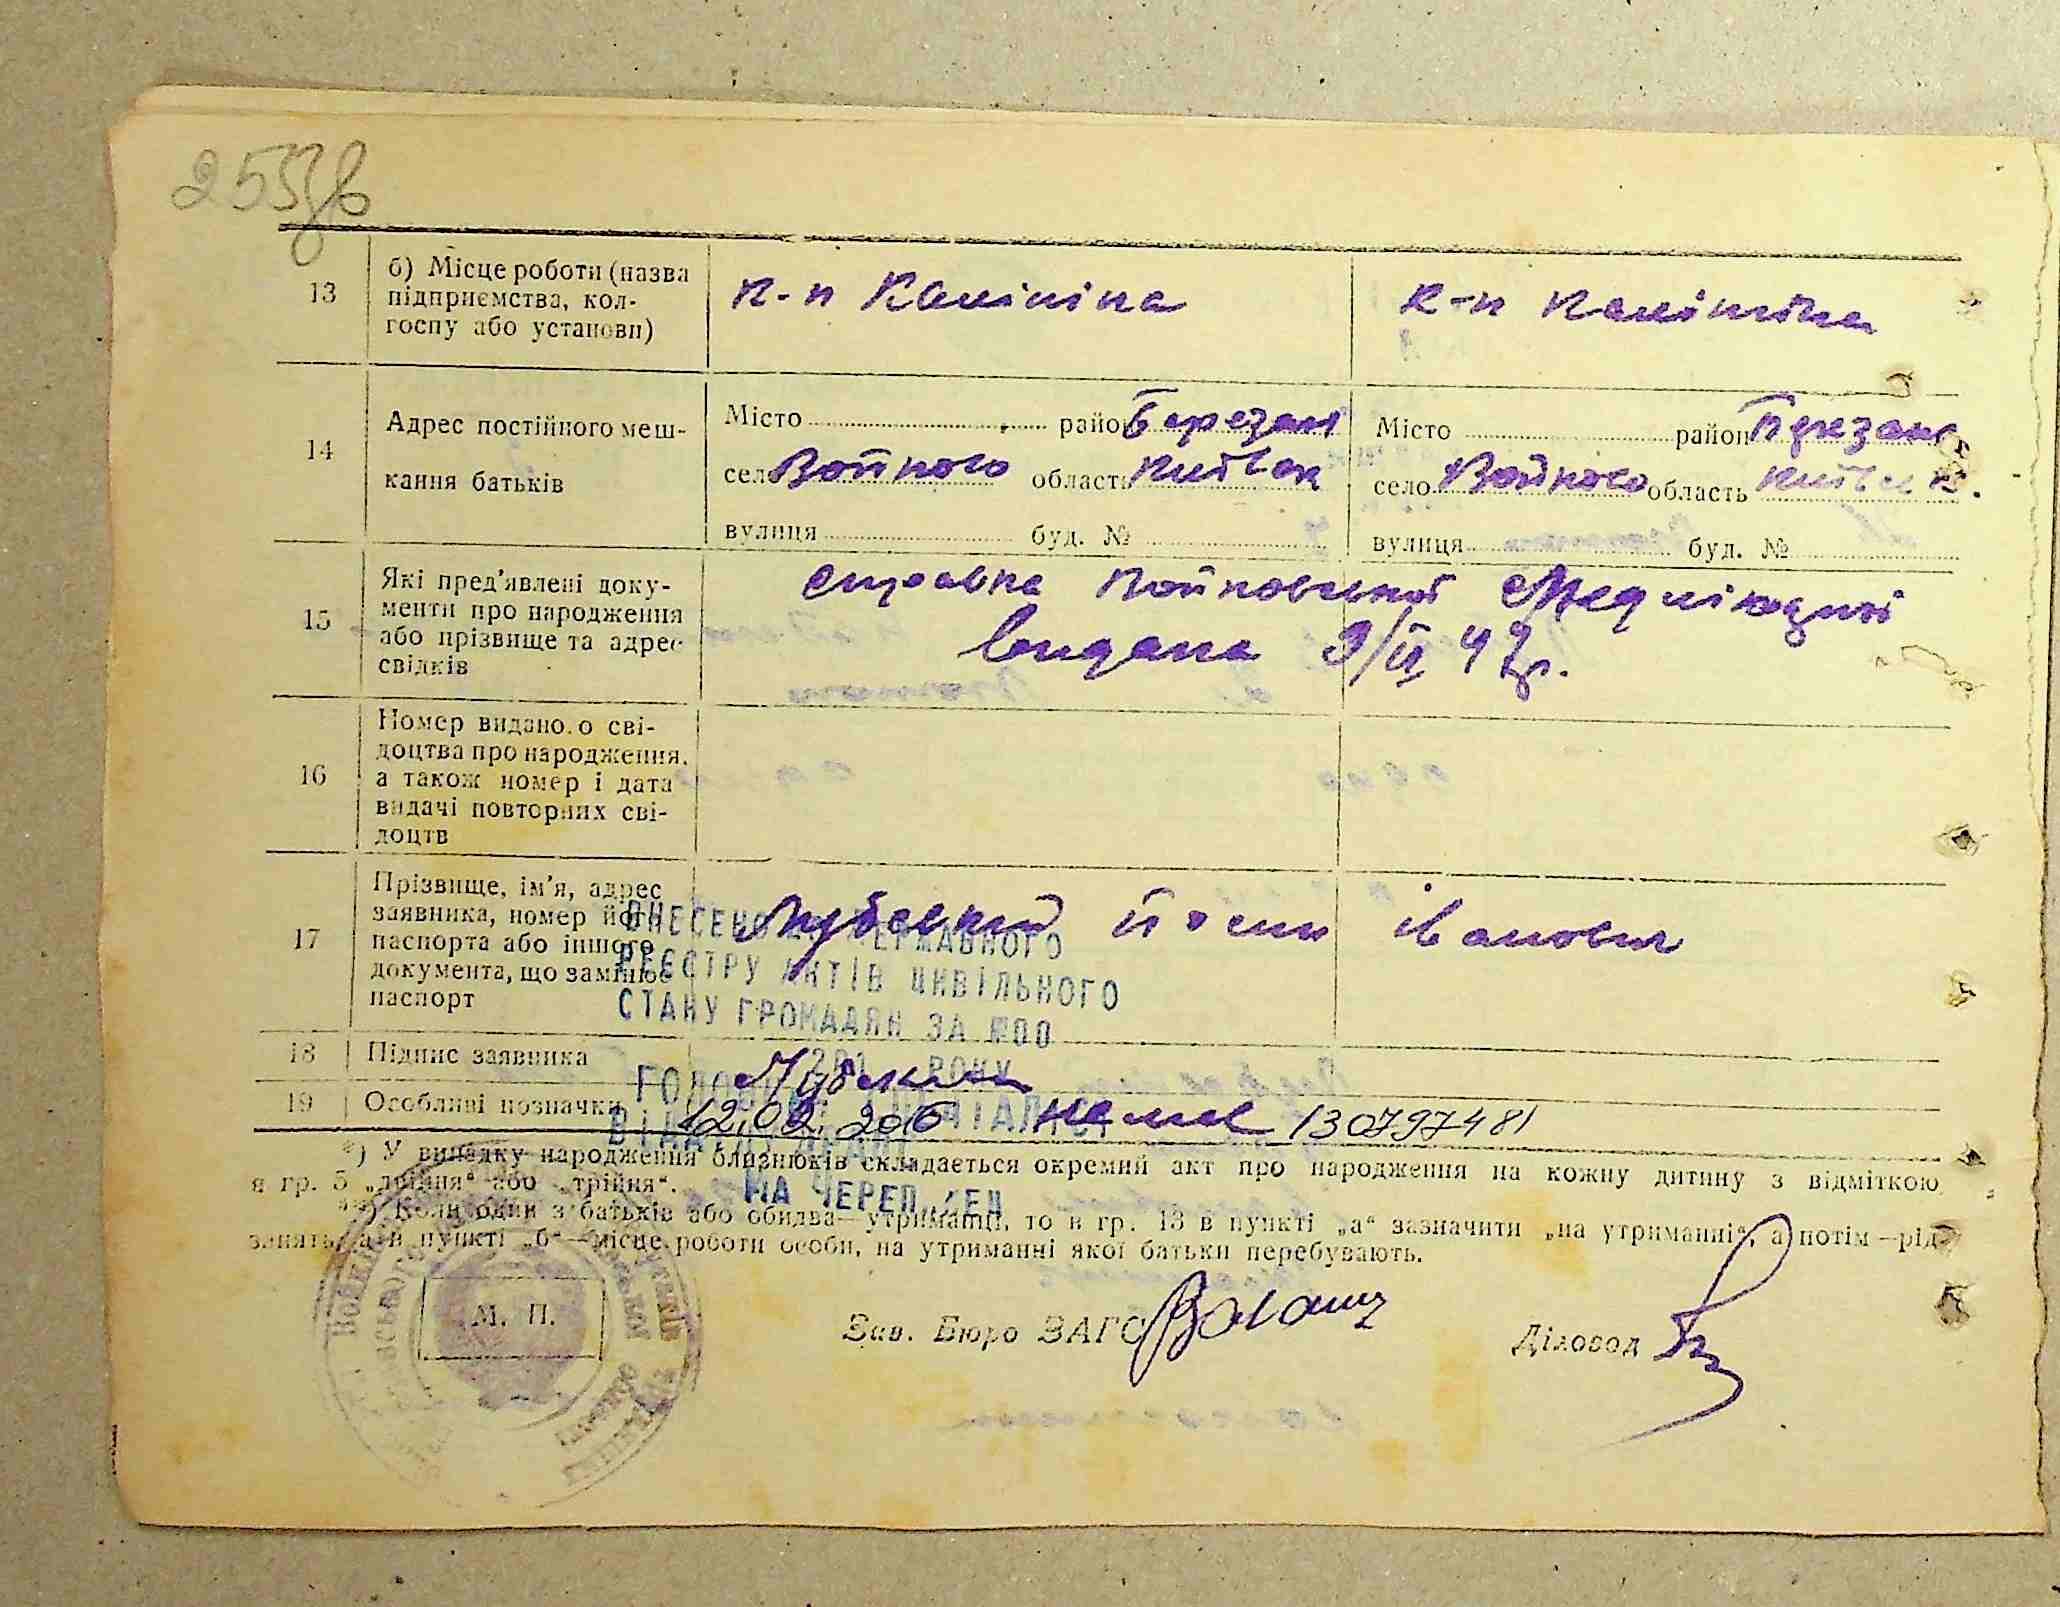 13
б) Місце роботи (назва
підприємства, кол-
госпу або установи)
к-п Калініна
к-п Калініна
14
Адрес постійного меш-
кання батьків
Місто район Березан
село Войкого область Київськ
вулиця буд. №
Місто район Березан
село Войкого область Київськ.
вулиця буд. №
15
Які пред'явлені доку-
менти про народження
або прізвище та адрес
свідків
справка Войковської
видана 9/ІІ 47р.
16
Номер видано.о сві-
доцтва про народження,
а також номер і дата
видачі повторних сві-
доцтв
17
Прізвище, ім'я, адрес
заявника, номер його
паспорта або іншого
документа, що замінює
паспорт
Іванович
ВНЕСЕНО ДЕРЖАВНОГО
РЕЄСТРУ АКТІВ ЦИВІЛЬНОГО
СТАНУ ГРОМАДЯН ЗА №00
РОКУ
18
Підпис заявника
19
Особливі позначки
12.02.2016 немає 130797481
*) У випадку народження близнюків складається окремий акт про народження на кожну дитину з відміткою
в гр. 5 „двійня“ або „трійня“.
**) Коли один з батьків або обидва—утриманці, то в гр. 13 в пункті „а“ зазначити „на утриманні“, а потім—рід
занять, а в пункті „б“—місце роботи особи, на утриманні якої батьки перебувають.
М. П.
Зав. Бюро ЗАГС
Діловод